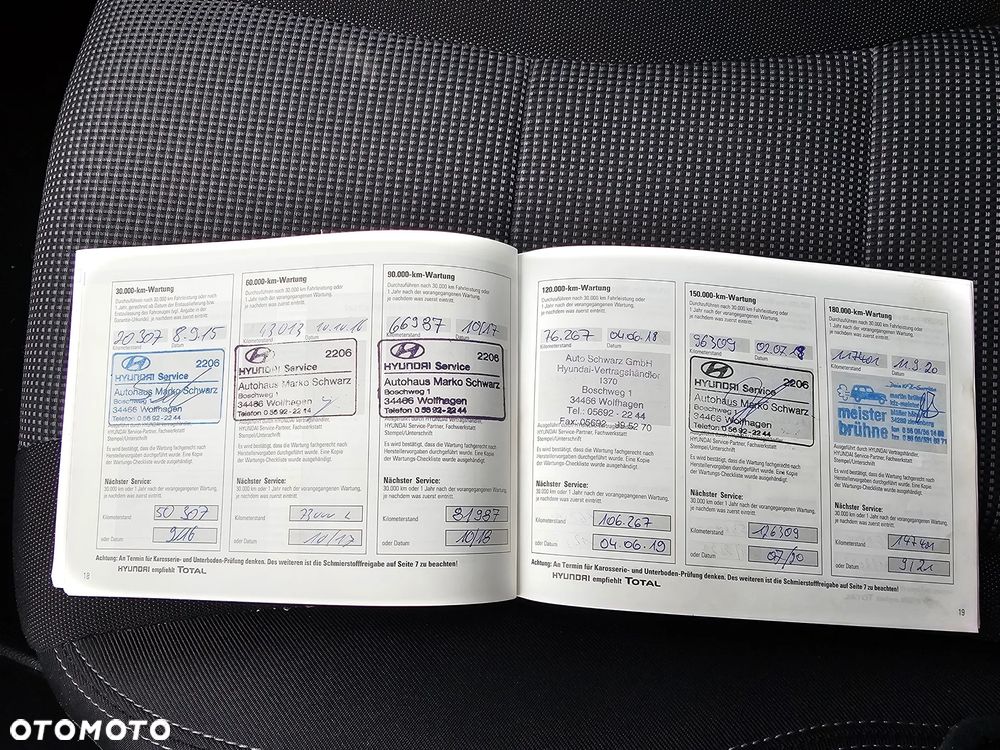 30.000-km-Wartung
Durchzuführen nach 30.000 km Fahrleistung oder nach
1 Jahr, gerechnet ab Datum der Erstauslieferung bzw.
Erstzulassung des Fahrzeuges (vgl. Angabe in der
Garantie-Urkunde), je nachdem was zuerst eintritt.
20307 8.9.15
Kilometerstand Datum
2206
HYUNDAI Service
Autohaus Marko Schwarz
Boschweg 1
34466 Wolfhagen
Telefon 0 56 92-22 44
HYUNDAI Service-Partner, Fachwerkstatt
Stempel/Unterschrift
Es wird bestätigt, dass die Wartung fachgerecht nach
Herstellervorgaben durchgeführt wurde. Eine Kopie
der Wartungs-Checkliste wurde ausgehändigt.
Nächster Service:
30.000 km oder 1 Jahr nach der vorangegangenen Wartung,
je nachdem was zuerst eintritt.
Kilometerstand 50 307
oder Datum 9/16
60.000-km-Wartung
Durchzuführen nach 30.000 km Fahrleistung oder
1 Jahr nach der vorangegangenen Wartung,
je nachdem was zuerst eintritt.
43013 10.10.16
Kilometerstand Datum
2206
HYUNDAI Service
Autohaus Marko Schwarz
Boschweg 1
34466 Wolfhagen
Telefon 0 56 92-22 44
HYUNDAI Service-Partner, Fachwerkstatt
Stempel/Unterschrift
Es wird bestätigt, dass die Wartung fachgerecht nach
Herstellervorgaben durchgeführt wurde. Eine Kopie
der Wartungs-Checkliste wurde ausgehändigt.
Nächster Service:
30.000 km oder 1 Jahr nach der vorangegangenen Wartung,
je nachdem was zuerst eintritt.
Kilometerstand
oder Datum 10/17
90.000-km-Wartung
Durchzuführen nach 30.000 km Fahrleistung oder
1 Jahr nach der vorangegangenen Wartung,
je nachdem was zuerst eintritt.
66987 10/17
Kilometerstand Datum
2206
HYUNDAI Service
Autohaus Marko Schwarz
Boschweg 1
34466 Wolfhagen
Telefon 0 56 92-22 44
HYUNDAI Service-Partner, Fachwerkstatt
Stempel/Unterschrift
Es wird bestätigt, dass die Wartung fachgerecht nach
Herstellervorgaben durchgeführt wurde. Eine Kopie
der Wartungs-Checkliste wurde ausgehändigt.
Nächster Service:
30.000 km oder 1 Jahr nach der vorangegangenen Wartung,
je nachdem was zuerst eintritt.
Kilometerstand 81987
oder Datum 10/18
Achtung: An Termin für Karosserie- und Unterboden-Prüfung denken. Des weiteren ist die Schmierstofffreigabe auf Seite 7 zu beachten!
18
HYUNDAI empfiehlt TOTAL
120.000-km-Wartung
Durchzuführen nach 30.000 km Fahrleistung oder
1 Jahr nach der vorangegangenen Wartung,
je nachdem was zuerst eintritt.
76.267 04.06.18
Kilometerstand Datum
Auto Schwarz GmbH
Hyundai-Vertragshändler
1370
Boschweg 1
34466 Wolfhagen
Tel.: 05692 - 22 44
Fax 05692 - 99 52 70
HYUNDAI Service-Partner, Fachwerkstatt
Stempel/Unterschrift
Es wird bestätigt, dass die Wartung fachgerecht nach
Herstellervorgaben durchgeführt wurde. Eine Kopie
der Wartungs-Checkliste wurde ausgehändigt.
Nächster Service:
30.000 km oder 1 Jahr nach der vorangegangenen Wartung,
je nachdem was zuerst eintritt.
Kilometerstand 106.267
oder Datum 04.06.19
150.000-km-Wartung
Durchzuführen nach 30.000 km Fahrleistung oder
1 Jahr nach der vorangegangenen Wartung,
je nachdem was zuerst eintritt.
96309 02.07.19
Kilometerstand Datum
2206
HYUNDAI Service
Autohaus Marko Schwarz
Boschweg 1
34466 Wolfhagen
Telefon 0 56 92-22 44
HYUNDAI Service-Partner, Fachwerkstatt
Stempel/Unterschrift
Es wird bestätigt, dass die Wartung fachgerecht nach
Herstellervorgaben durchgeführt wurde. Eine Kopie
der Wartungs-Checkliste wurde ausgehändigt.
Nächster Service:
30.000 km oder 1 Jahr nach der vorangegangenen Wartung,
je nachdem was zuerst eintritt.
Kilometerstand 126309
oder Datum 07/20
180.000-km-Wartung
Durchzuführen nach 30.000 km Fahrleistung oder
1 Jahr nach der vorangegangenen Wartung,
je nachdem was zuerst eintritt.
117401 11.9.20
Kilometerstand Datum
Dein KFZ-Service
martin brühne
kfz-meister
meister
brühne
Ausgeführt durch HYUNDAI Vertragshändler,
HYUNDAI Service-Partner, Fachwerkstatt
Stempel/Unterschrift
Es wird bestätigt, dass die Wartung fachgerecht nach
Herstellervorgaben durchgeführt wurde. Eine Kopie
der Wartungs-Checkliste wurde ausgehändigt.
Nächster Service:
30.000 km oder 1 Jahr nach der vorangegangenen Wartung,
je nachdem was zuerst eintritt.
Kilometerstand 147401
oder Datum 9/21
Achtung: An Termin für Karosserie- und Unterboden-Prüfung denken. Des weiteren ist die Schmierstofffreigabe auf Seite 7 zu beachten!
HYUNDAI empfiehlt TOTAL
19
OTOMOTO